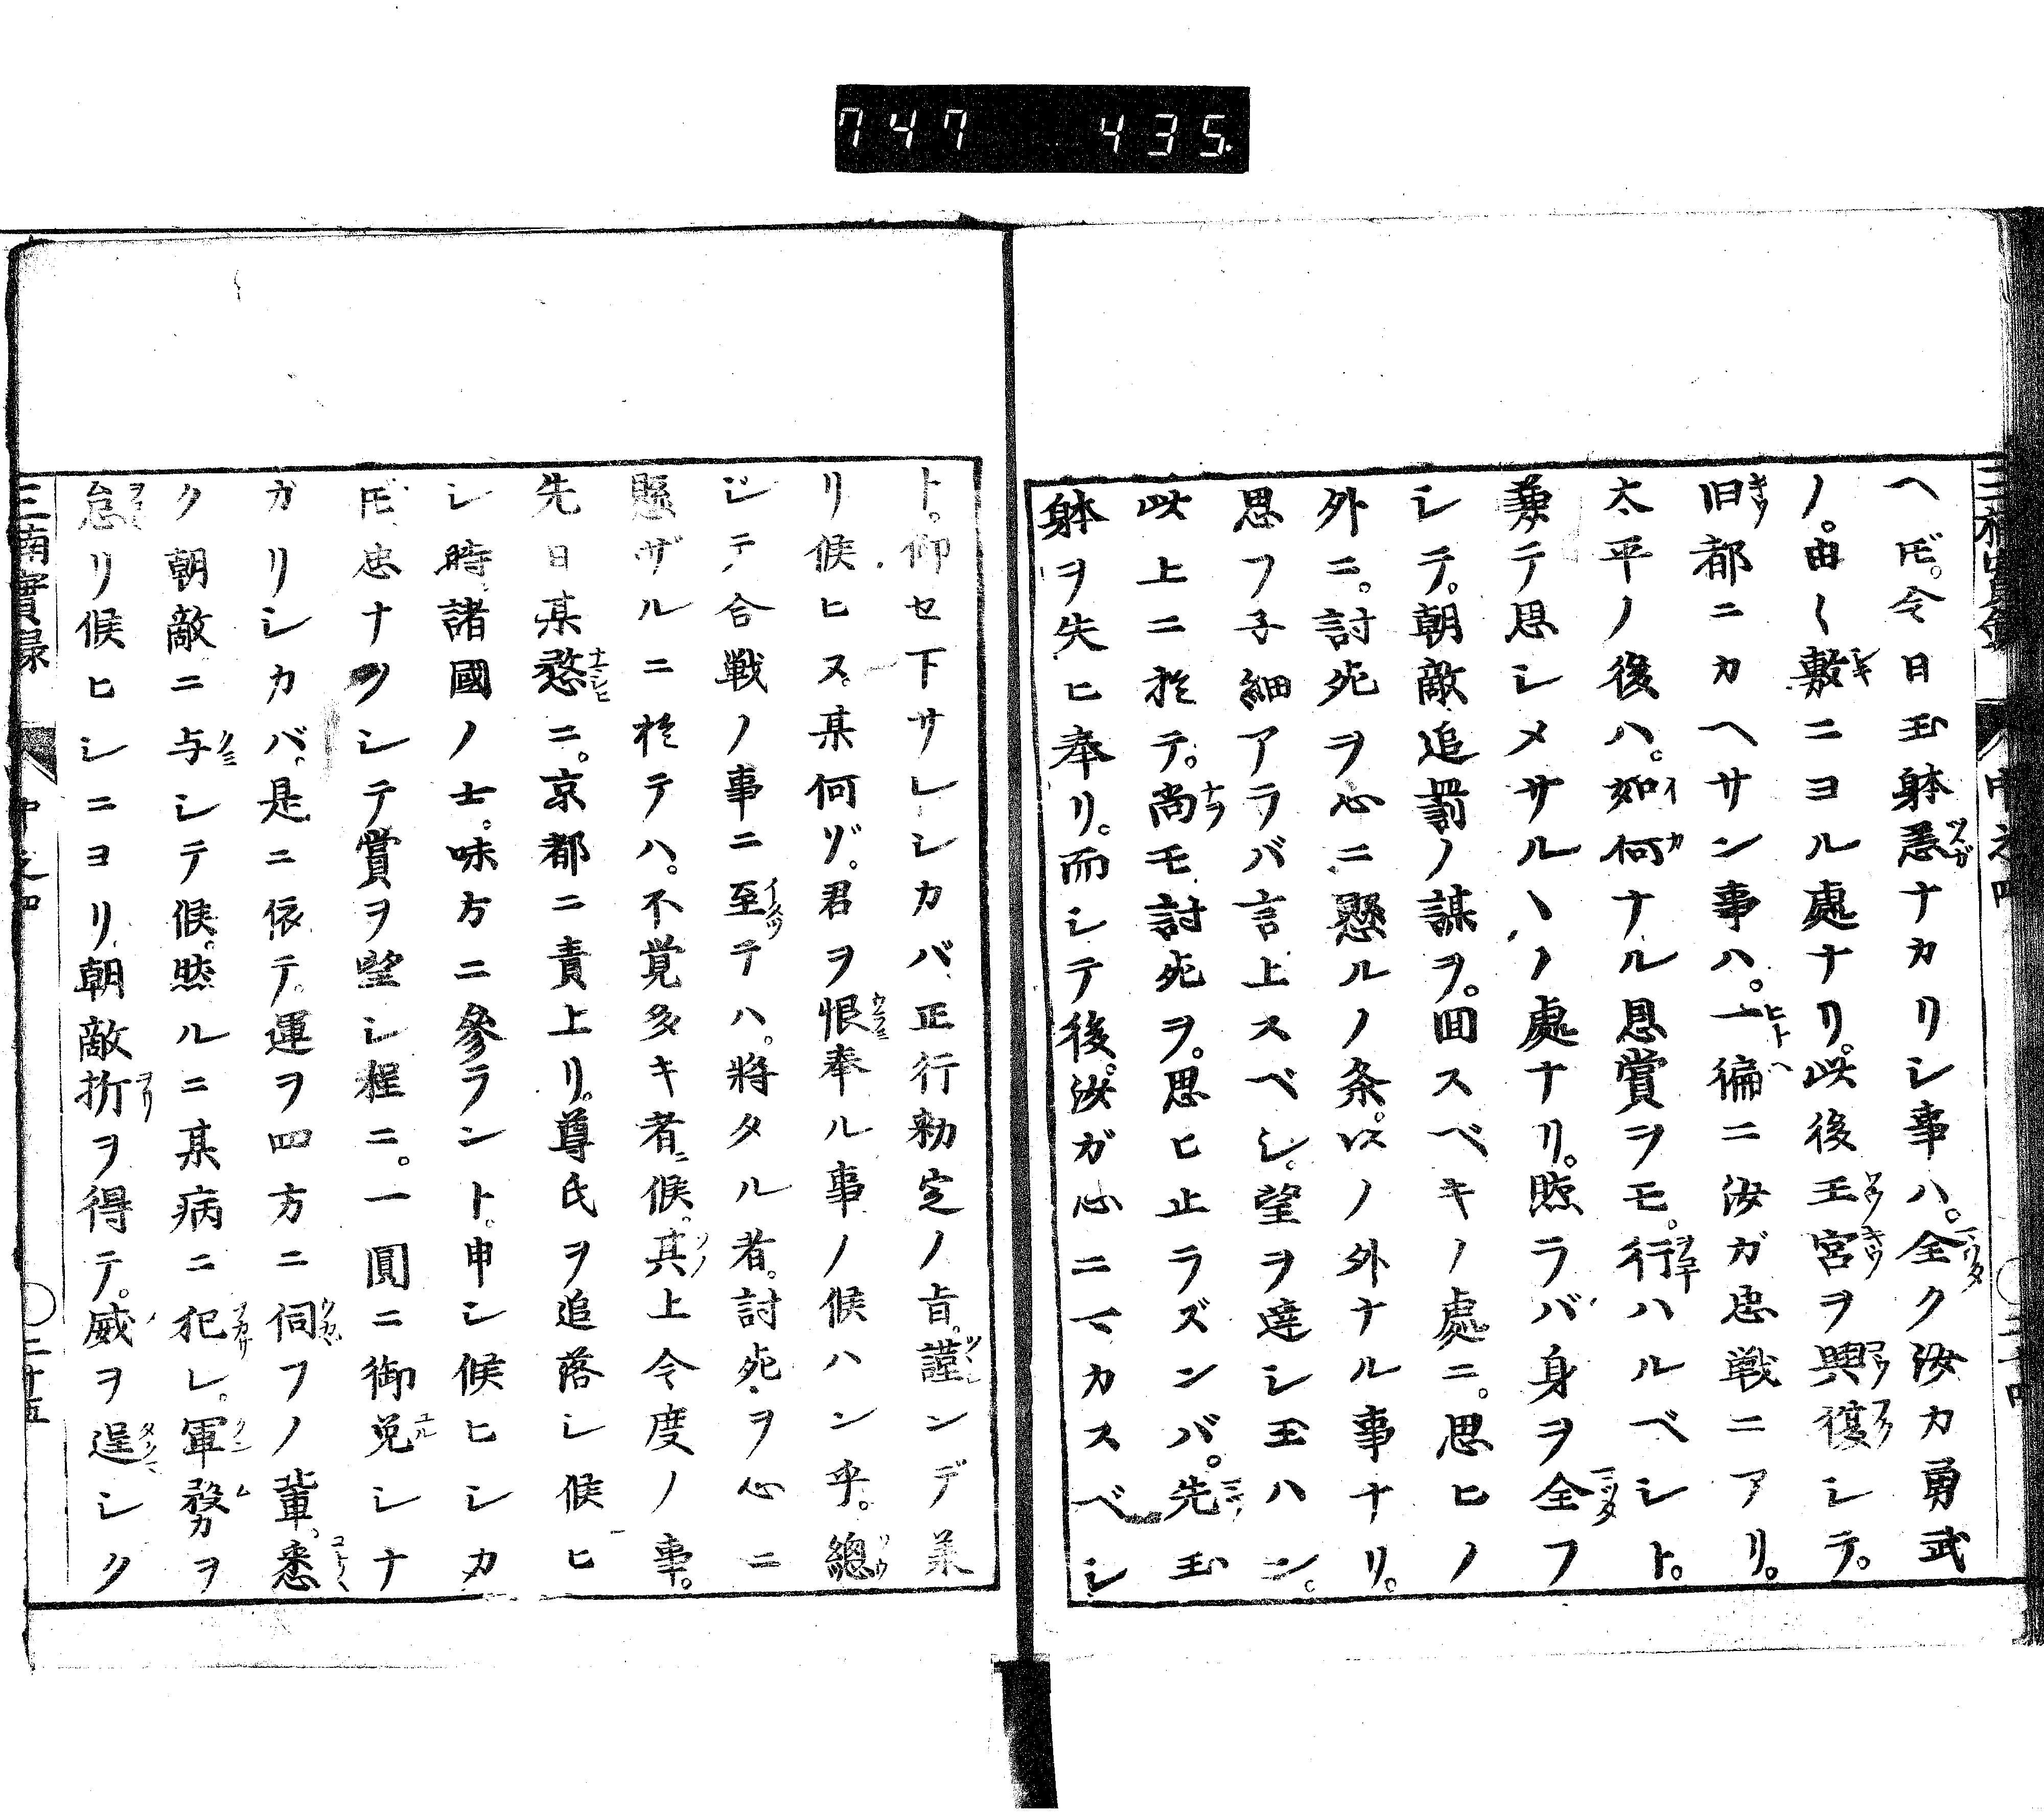 747 435
ヘ𪜈。今日玉躰恙ナカリシ事ハ。全ク汝カ勇武
ノ。由〻敷ニヨル處ナリ。此後王宮ヲ興復シテ。
旧都ニカヘサン事ハ。一徧ニ汝ガ忠戦ニアリ。
太平ノ後ハ。如何ナル恩賞ヲモ。行ハルベシト。
兼テ思シメサルヽノ處ナリ。然ラバ身ヲ全フ
シテ。朝敵追罰ノ謀ヲ。回スベキノ處ニ。思ヒノ
外ニ。討死ヲ心ニ懸ルノ条。以ノ外ナル事ナリ。
思フ子細アラバ言上スベシ。望ヲ達シ玉ハン。
此上ニ於テ。尚モ討死ヲ。思ヒ止ラズンバ。先玉
躰ヲ失ヒ奉リ。而シテ後。汝ガ心ニマカスベシ
ト。仰セ下サレシカバ、正行勅定ノ旨。謹ンデ承
リ候ヒヌ。某何ゾ。君ヲ恨奉ル事ノ候ハン乎。總
ジテ合戦ノ事ニ至テハ。將タル者。討死ヲ心ニ
懸ザルニ於テハ。不覚多キ者ニ候。其上今度ノ事。
先日某憖ニ。京都ニ責上リ。尊氏ヲ追落シ候ヒ
シ時、諸國ノ士。味方ニ參ラント。申シ候ヒシカ
𪜈、忠ナクシテ賞ヲ望シ程ニ。一圓ニ御免シナ
ガリシカバ、是ニ依テ。運ヲ四方ニ伺フノ輩。悉
ク朝敵ニ与シテ候。然ルニ某病ニ犯レ。軍務ヲ
怠リ候ヒシニヨリ、朝敵折ヲ得テ。威ヲ逞シク
三楠實録 中之四 二十五